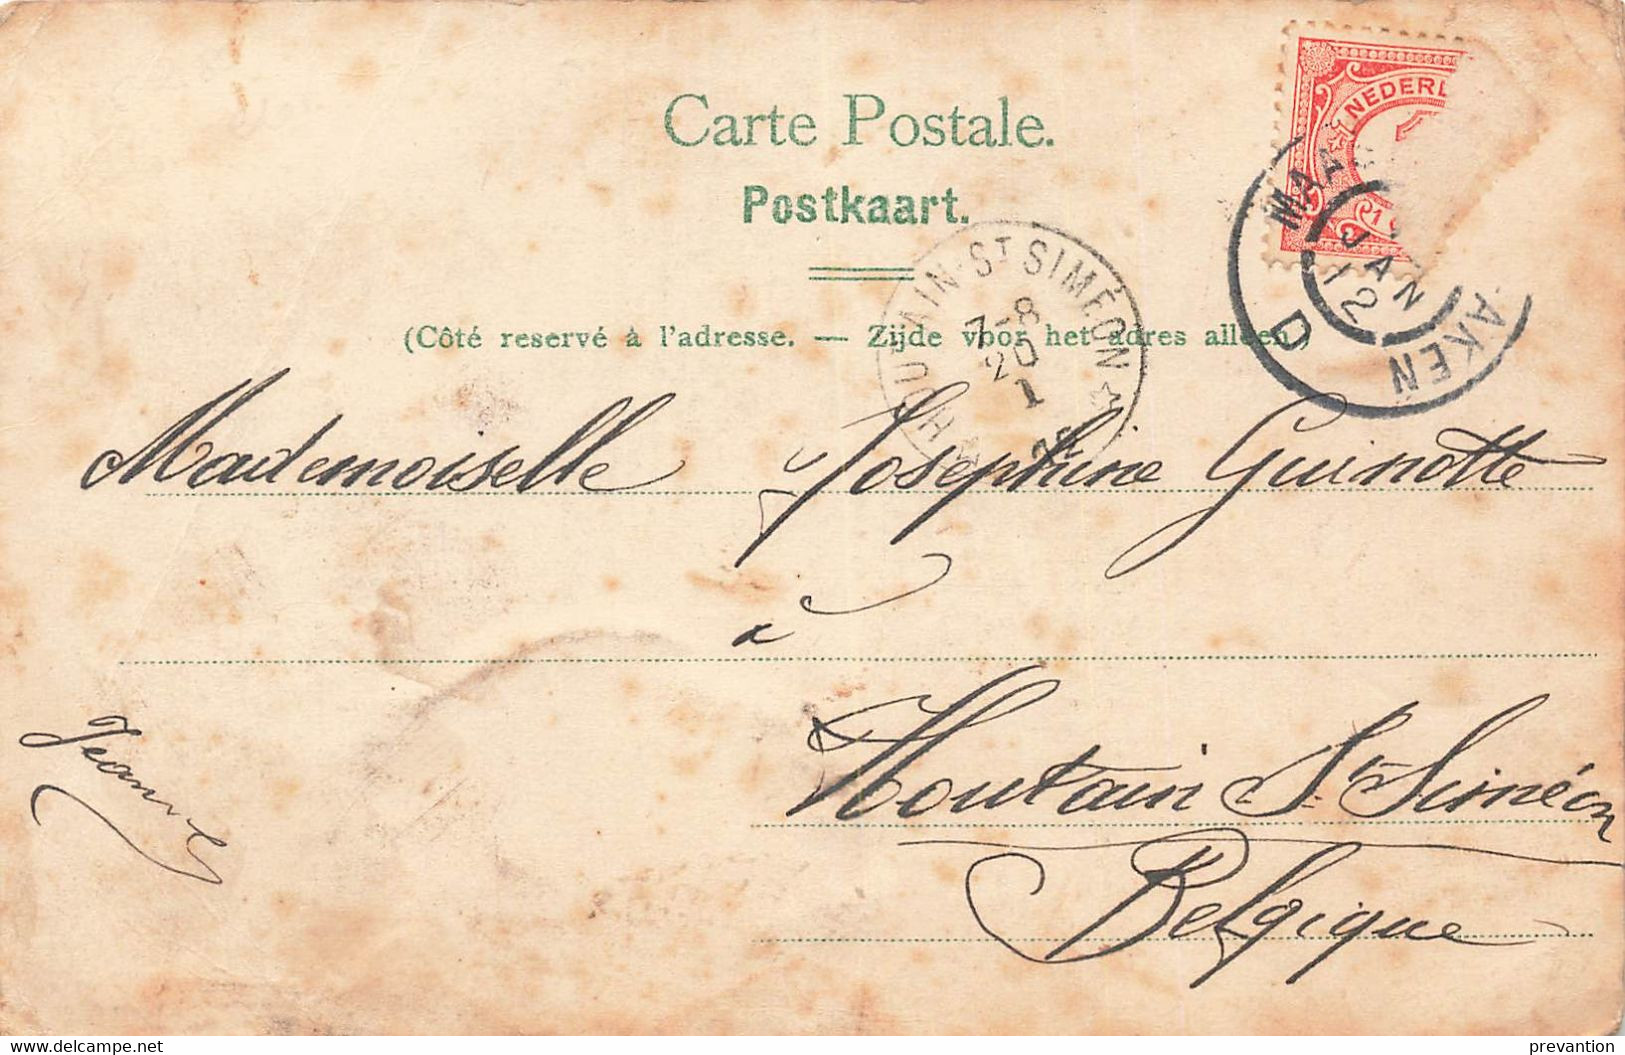 Carte Postale.
Postkaart.
(Côté reservé à l'adresse. — Zijde voor het adres alleen.)
NEDERL
MAAS
AKEN
JAN
12
D
HOUTAIN-ST SIMÉON
7-8
20
1
Mademoiselle Josephine Guinotte
à
Houtain St Siméon
Belgique
Jeanne
prevantion